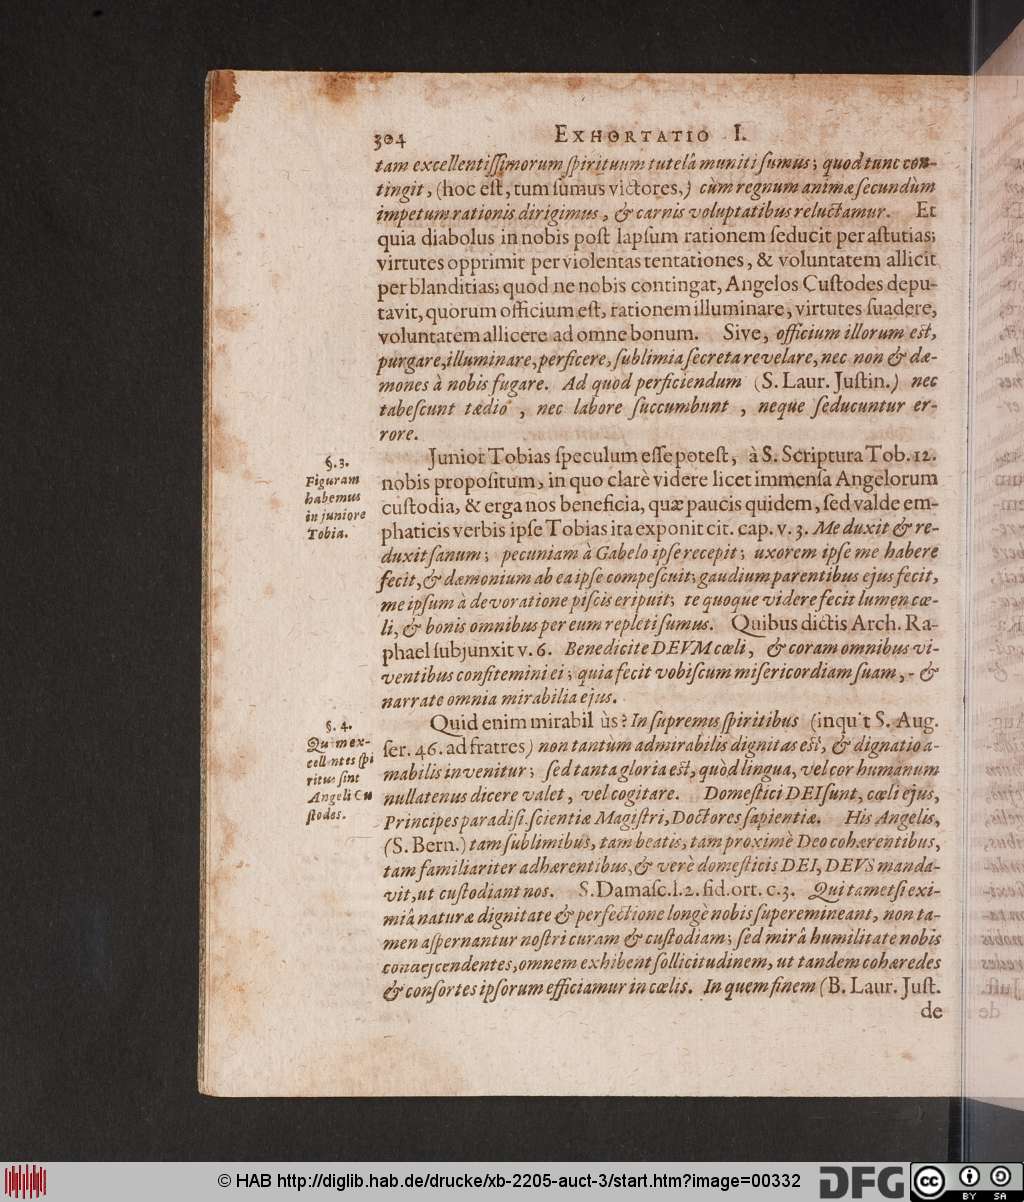 304 EXHORTATIO I.
tam excellentiſſimorum ſpirituum tutelâ muniti ſumus; quod tunc con-
tingit, (hoc eſt, tum ſumus victores,) cùm regnum animæ ſecundùm
impetum rationis dirigimus, & carnis voluptatibus reluctamur. Et
quia diabolus in nobis poſt lapſum rationem ſeducit per aſtutias;
virtutes opprimit per violentas tentationes, & voluntatem allicit
per blanditias; quod ne nobis contingat, Angelos Cuſtodes depu-
tavit, quorum officium eſt, rationem illuminare, virtutes ſuadere,
voluntatem allicere ad omne bonum. Sive, officium illorum eſt,
purgare, illuminare, perficere, ſublimia ſecreta revelare, nec non & dæ-
mones à nobis fugare. Ad quod perficiendum (S. Laur. Juſtin.) nec
tabeſcunt tædio, nec labore ſuccumbunt, neque ſeducuntur er-
rore.
§. 3.
Figuram
habemus
in juniore
Tobia.
Junior Tobias ſpeculum eſſe poteſt, à S. Scriptura Tob. 12.
nobis propoſitum, in quo clarè videre licet immenſa Angelorum
cuſtodia, & erga nos beneficia, quæ paucis quidem, ſed valde em-
phaticis verbis ipſe Tobias ita exponit cit. cap. v. 3. Me duxit & re-
duxit ſanum; pecuniam à Gabelo ipſe recepit; uxorem ipſe me habere
fecit, & dæmonium ab ea ipſe compeſcuit; gaudium parentibus ejus fecit,
me ipſum à devoratione piſcis eripuit; te quoque videre fecit lumen cœ-
li, & bonis omnibus per eum repleti ſumus. Quibus dictis Arch. Ra-
phael ſubjunxit v. 6. Benedicite DEUM cœli, & coram omnibus vi-
ventibus confitemini ei; quia fecit vobiſcum miſericordiam ſuam, - &
narrate omnia mirabilia ejus.
§. 4.
Quàm ex-
cellentes ſpi
ritus ſint
Angeli Cu
ſtodes.
Quid enim mirabilùs? In ſupremis ſpiritibus (inquit S. Aug.
ſer. 46. ad fratres) non tantùm admirabilis dignitas eſt, & dignatio a-
mabilis invenitur; ſed tanta gloria eſt, quòd lingua, vel cor humanum
nullatenus dicere valet, vel cogitare. Domeſtici DEI ſunt, cœli ejus,
Principes paradiſi, ſcientiæ Magiſtri, Doctores ſapientiæ. His Angelis,
(S. Bern.) tam ſublimibus, tam beatis, tam proximè Deo cohærentibus,
tam familiariter adhærentibus, & verè domeſticis DEI, DEUS manda-
vit, ut cuſtodiant nos. S. Damaſc. l. 2. fid. ort. c. 3. Qui tametſi exi-
miâ naturæ dignitate & perfectione longè nobis ſuperemineant, non ta-
men aſpernantur noſtri curam & cuſtodiam; ſed mirâ humilitate nobis
condeſcendentes, omnem exhibent ſollicitudinem, ut tandem cohæredes
& conſortes ipſorum efficiamur in cœlis. In quem finem (B. Laur. Juſt.
de
© HAB http://diglib.hab.de/drucke/xb-2205-auct-3/start.htm?image=00332
DFG cc BY SA